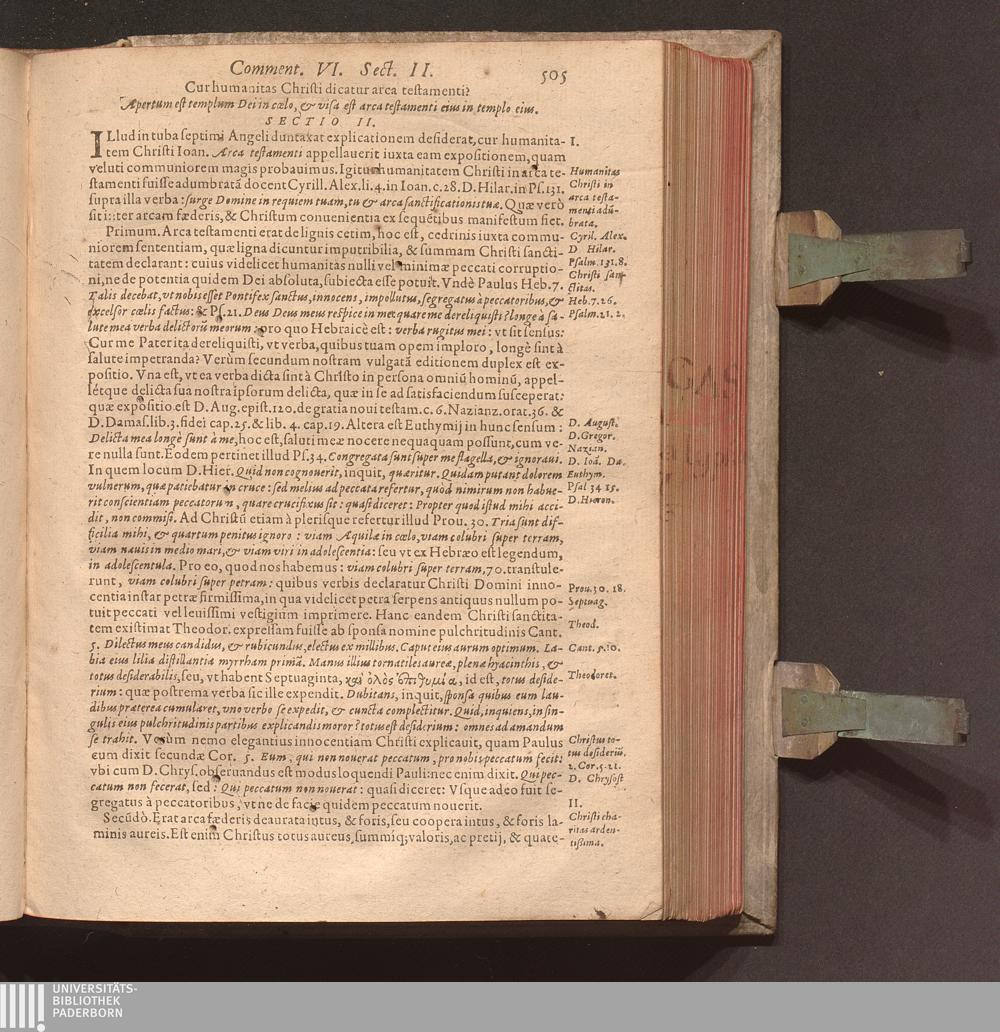 Comment. VI. Sect. II. 505
Cur humanitas Christi dicatur arca testamenti?
Apertum est templum Dei in cœlo, & visa est arca testamenti eius in templo eius.
SECTIO II.
ILlud in tuba septimi Angeli duntaxat explicationem desiderat, cur humanita-
tem Christi Ioan. Arca testamenti appellauerit iuxta eam expositionem, quam
veluti communiorem magis probauimus. Igitur humanitatem Christi in arca te-
stamenti fuisse adumbratā docent Cyrill. Alex. li. 4. in Ioan. c. 28. D. Hilar. in Ps. 131.
supra illa verba: surge Domine in requiem tuam, tu & arca sanctificationis tuæ. Quæ verò
sit inter arcam fæderis, & Christum conuenientia ex sequētibus manifestum fiet.
Primum. Arca testamenti erat de lignis cetim, hoc est, cedrinis iuxta commu-
niorem sententiam, quæ ligna dicuntur imputribilia, & summam Christi sancti-
tatem declarant: cuius videlicet humanitas nulli vel minimæ peccati corruptio-
ni, ne de potentia quidem Dei absoluta, subiecta esse potuit. Vndè Paulus Heb. 7.
Talis decebat, vt nobis esset Pontifex sanctus, innocens, impollutus, segregatus à peccatoribus, &
excelsior cœlis factus: & Ps. 21. Deus Deus meus respice in me: quare me dereliquisti? longè à sa-
lute mea verba delictorū meorum: pro quo Hebraicè est: verba rugitus mei: vt sit sensus:
Cur me Pater ita dereliquisti, vt verba, quibus tuam opem imploro, longè sint à
salute impetranda? Verùm secundum nostram vulgatā editionem duplex est ex-
positio. Vna est, vt ea verba dicta sint à Christo in persona omniū hominū, appel-
létque delicta sua nostra ipsorum delicta, quæ in se ad satisfaciendum susceperat:
quæ expositio est D. Aug. epist. 120. de gratia noui testam. c. 6. Nazianz. orat. 36. &
D. Damas. lib. 3. fidei cap. 25. & lib. 4. cap. 19. Altera est Euthymij in hunc sensum:
Delicta mea longè sunt à me, hoc est, saluti meæ nocere nequaquam possunt, cum ve-
re nulla sunt. Eodem pertinet illud Ps. 34. Congregata sunt super me flagella, & ignoraui.
In quem locum D. Hier. Quid non cognouerit, inquit, quæritur. Quidam putant dolorem
vulnerum, quæ patiebatur in cruce: sed melius ad peccata refertur, quòd nimirum non habue-
rit conscientiam peccatorum, quare crucifixus sit: quasi diceret: Propter quod istud mihi acci-
dit, non commisi. Ad Christū etiam à plerisque refertur illud Prou. 30. Tria sunt dif-
ficilia mihi, & quartum penitus ignoro: viam Aquilæ in cœlo, viam colubri super terram,
viam nauis in medio mari, & viam viri in adolescentia: seu vt ex Hebræo est legendum,
in adolescentula. Pro eo, quod nos habemus: viam colubri super terram, 70. transtule-
runt, viam colubri super petram: quibus verbis declaratur Christi Domini inno-
centia instar petræ firmissima, in qua videlicet petra serpens antiquus nullum po-
tuit peccati vel leuissimi vestigium imprimere. Hanc eandem Christi sanctita-
tem existimat Theodor. expressam fuisse ab sponsa nomine pulchritudinis Cant.
5. Dilectus meus candidus, & rubicundus, electus ex millibus. Caput eius aurum optimum. La-
bia eius lilia distillantia myrrham primā. Manus illius tornatiles aureæ, plenæ hyacinthis, &
totus desiderabilis, seu, vt habent Septuaginta, καὶ ὅλος ἐπιθυμία, id est, totus deside-
rium: quæ postrema verba sic ille expendit. Dubitans, inquit, sponsa quibus eum lau-
dibus præterea cumularet, vno verbo se expedit, & cuncta complectitur. Quid, inquiens, in sin-
gulis eius pulchritudinis partibus explicandis moror? totus est desiderium: omnes ad amandum
se trahit. Verùm nemo elegantius innocentiam Christi explicauit, quam Paulus
cum dixit secundæ Cor. 5. Eum, qui non nouerat peccatum, pro nobis peccatum fecit:
vbi cum D. Chrys. obseruandus est modus loquendi Pauli: nec enim dixit. Qui pec-
catum non fecerat, sed: Qui peccatum non nouerat: quasi diceret: Vsque adeo fuit se-
gregatus à peccatoribus, vt ne de facie quidem peccatum nouerit.
Secūdò. Erat arca fæderis deaurata intus, & foris, seu cooperta intus, & foris la-
minis aureis. Est enim Christus totus aureus, summiq; valoris, ac pretij, & quate-
I.
Humanitas
Christi in
arca testa-
menti adū-
brata.
Cyril. Alex.
D Hilar.
Psalm. 131. 8.
Christi san-
ctitas.
Heb. 7. 26.
Psalm. 21. 2.
D. August.
D. Gregor.
Nazian.
D. Ioā. Da.
Euthym.
Psal 34 15.
D. Hieron.
Prou. 30. 18.
Septuag.
Theod.
Cant. 5. 10.
Theodoret.
Christus to-
tus desideriū.
2. Cor. 5. 21.
D. Chrysost
II.
Christi cha-
ritas arden-
tissima.
UNIVERSITÄTS-
BIBLIOTHEK
PADERBORN